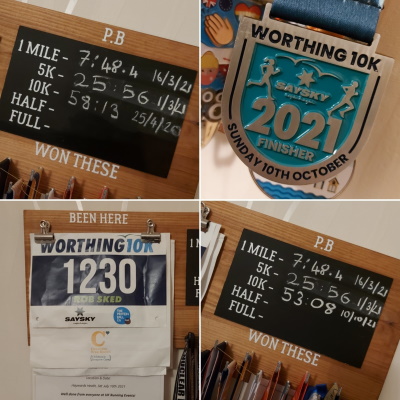 P.B
1 MILE - 7:48.4 16/3/21
5K - 25:56 1/3/21
10K - 58:13 25/4/20
HALF -
FULL -
WON THESE
WORTHING 10K
SAYSKY
2021
FINISHER
SUNDAY 10TH OCTOBER
BEEN HERE
WORTHING 10K
1230
ROB SKED
SAYSKY
P.B
1 MILE - 7:48.4 16/3/21
5K - 25:56 1/3/21
10K - 53:08 10/10/21
HALF -
FULL -
WON THESE